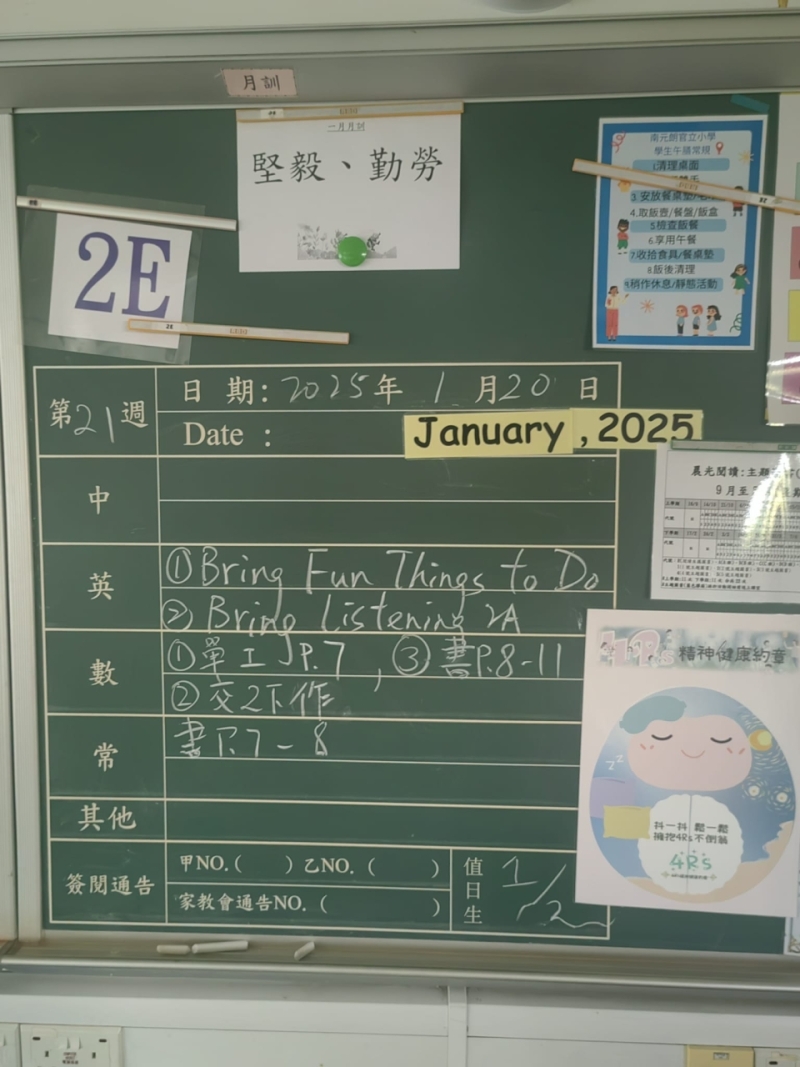 月訓
一月月訓
堅毅、勤勞
2E
南元朗官立小學
學生午膳常規
1清理桌面
3.安放餐桌墊/
4.取飯壺/餐盤/飯盒
5檢查飯餐
6享用午餐
7收拾食具/餐桌墊
8飯後清理
9稍作休息/靜態活動
第21週
日期: 2025年1月20日
Date :
January , 2025
中
英
①Bring Fun Things to Do
②Bring Listening 2A
數
①單工JP.7,③書P.8-11
②交2下作
常
書P.7-8
其他
簽閱通告
甲NO.( )乙NO.( )
家教會通告NO.( )
值日生
1/2
晨光閱讀:主題
9月至
4Rs精神健康約章
zz
抖一抖 鬆一鬆
擁抱4Rs不倒翁
4RS